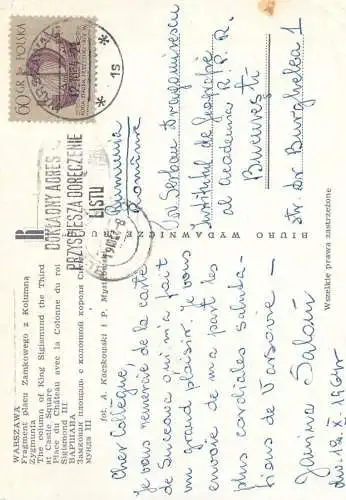 WARSZAWA
Fragment placu Zamkowego z Kolumną
Zygmunta
The column of King Sigismond the Third
at Castle Square
Place du Château avec la Colonne du roi
Sigismond III
ВАРШАВА
Замковая площадь с колонной короля Сигиз-
мунда III
fot. A. Kaczkowski i P. Mystkowski
Cher Collègue,
je vous remercie de la carte
de Suceava qui m'a fait
un grand plaisir. Je vous
envoie de ma part les
plus cordiales saluta-
tions de Varsovie –
Janina
X. 1964
BIURO WYDAWNICZE RUCH
Wszelkie prawa zastrzeżone
60 GR POLSKA
1s
DOKŁADNY ADRES
PRZYSPIESZA DORĘCZENIE
LISTU
Rumunia
România
Serban Dragomirescu
Institutul de Geografie
al Academiei R.P.R.
București
str. Dr Burghelea 1